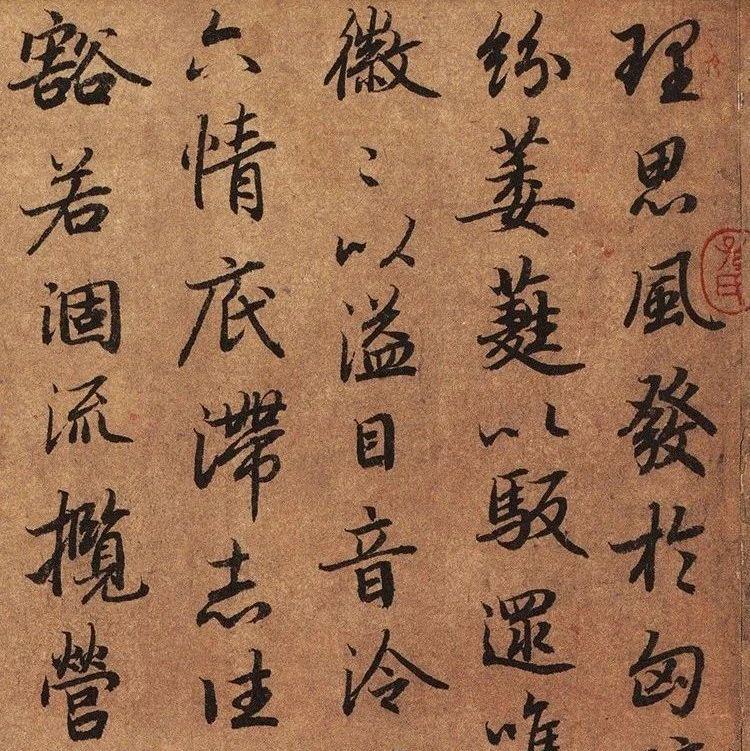 理思風發於匈
紛萎蕤以馺遝唯
徽〻以溢目音泠
六情底滯志往
豁若涸流攬營